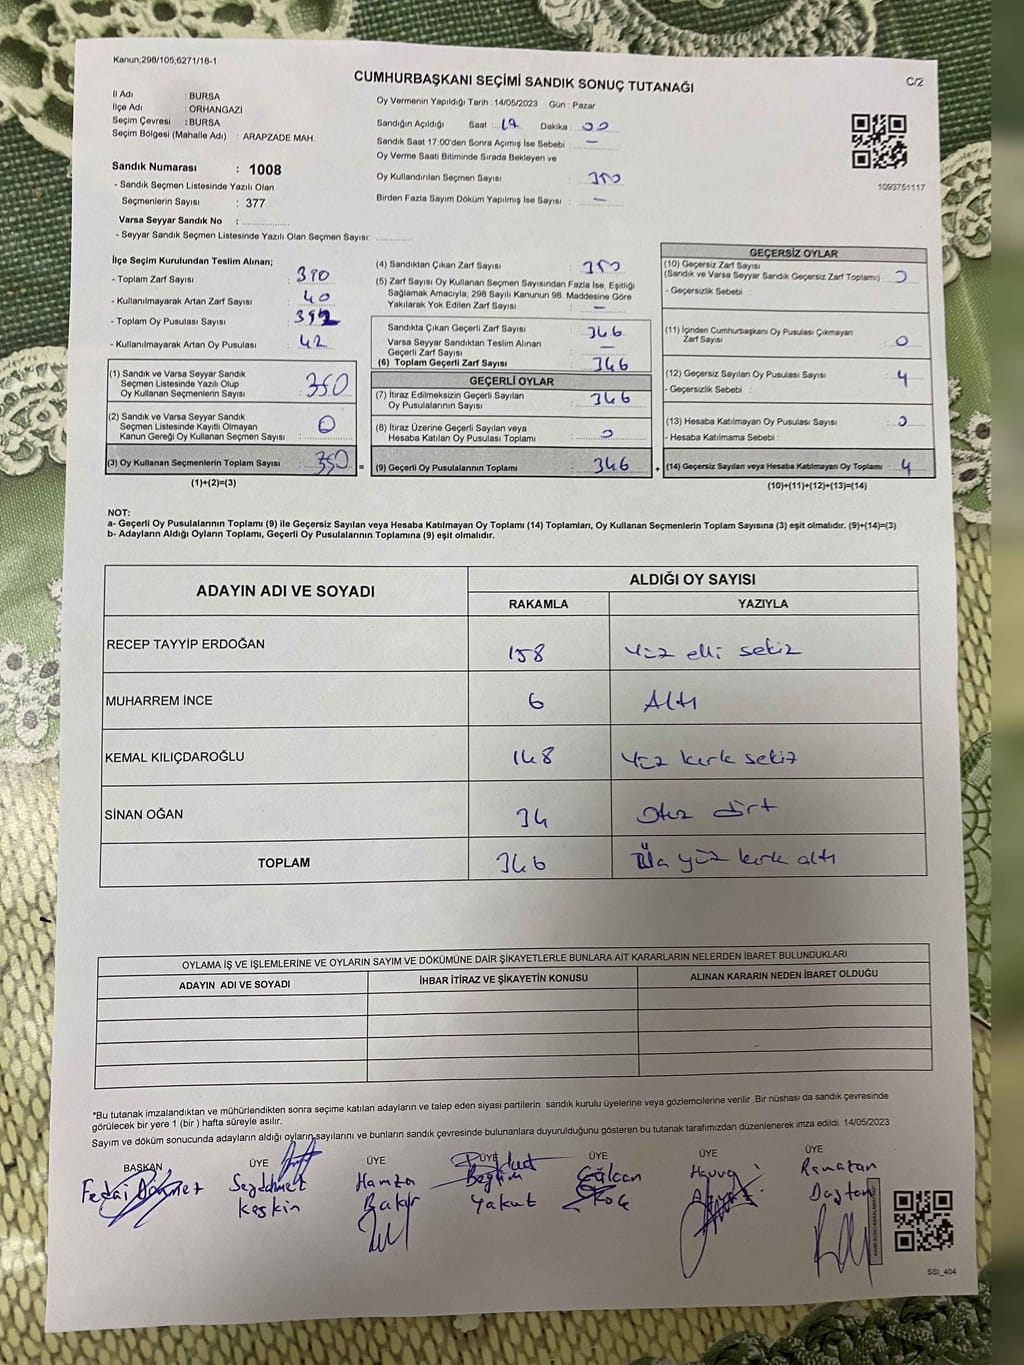 Kanun;298/105,6271/16-1
CUMHURBAŞKANI SEÇİMİ SANDIK SONUÇ TUTANAĞI
C/2
İl Adı : BURSA
İlçe Adı : ORHANGAZİ
Seçim Çevresi : BURSA
Seçim Bölgesi (Mahalle Adı) : ARAPZADE MAH.
Sandık Numarası : 1008
- Sandık Seçmen Listesinde Yazılı Olan
Seçmenlerin Sayısı : 377
Varsa Seyyar Sandık No :
- Seyyar Sandık Seçmen Listesinde Yazılı Olan Seçmen Sayısı:
Oy Vermenin Yapıldığı Tarih :14/05/2023 Gün : Pazar
Sandığın Açıldığı Saat : 17 Dakika : 00
Sandık Saat 17:00'den Sonra Açımış İse Sebebi : —
Oy Verme Saati Bitiminde Sırada Bekleyen ve
Oy Kullandırılan Seçmen Sayısı : 350
Birden Fazla Sayım Döküm Yapılmış İse Sayısı : —
1093751117
İlçe Seçim Kurulundan Teslim Alınan;
- Toplam Zarf Sayısı : 390
- Kullanılmayarak Artan Zarf Sayısı : 40
- Toplam Oy Pusulası Sayısı : 392
- Kullanılmayarak Artan Oy Pusulası : 42
(1) Sandık ve Varsa Seyyar Sandık
Seçmen Listesinde Yazılı Olup
Oy Kullanan Seçmenlerin Sayısı : 350
(2) Sandık ve Varsa Seyyar Sandık
Seçmen Listesinde Kayıtlı Olmayan
Kanun Gereği Oy Kullanan Seçmen Sayısı : 0
(3) Oy Kullanan Seçmenlerin Toplam Sayısı : 350
(1)+(2)=(3)
(4) Sandıktan Çıkan Zarf Sayısı : 350
(5) Zarf Sayısı Oy Kullanan Seçmen Sayısından Fazla İse, Eşitliği
Sağlamak Amacıyla; 298 Sayılı Kanunun 98. Maddesine Göre
Yakılarak Yok Edilen Zarf Sayısı : —
Sandıkta Çıkan Geçerli Zarf Sayısı : 346
Varsa Seyyar Sandıktan Teslim Alınan
Geçerli Zarf Sayısı : —
(6) Toplam Geçerli Zarf Sayısı : 346
GEÇERLİ OYLAR
(7) İtiraz Edilmeksizin Geçerli Sayılan
Oy Pusulalarının Sayısı : 346
(8) İtiraz Üzerine Geçerli Sayılan veya
Hesaba Katılan Oy Pusulası Toplamı : 0
= (9) Geçerli Oy Pusulalarının Toplamı : 346
GEÇERSİZ OYLAR
(10) Geçersiz Zarf Sayısı
(Sandık ve Varsa Seyyar Sandık Geçersiz Zarf Toplamı) : 0
- Geçersizlik Sebebi :
(11) İçinden Cumhurbaşkanı Oy Pusulası Çıkmayan
Zarf Sayısı : 0
(12) Geçersiz Sayılan Oy Pusulası Sayısı : 4
- Geçersizlik Sebebi :
(13) Hesaba Katılmayan Oy Pusulası Sayısı : 0
- Hesaba Katılmama Sebebi :
+ (14) Geçersiz Sayılan veya Hesaba Katılmayan Oy Toplamı : 4
(10)+(11)+(12)+(13)=(14)
NOT:
a- Geçerli Oy Pusulalarının Toplamı (9) ile Geçersiz Sayılan veya Hesaba Katılmayan Oy Toplamı (14) Toplamları, Oy Kullanan Seçmenlerin Toplam Sayısına (3) eşit olmalıdır. (9)+(14)=(3)
b- Adayların Aldığı Oyların Toplamı, Geçerli Oy Pusulalarının Toplamına (9) eşit olmalıdır.
ADAYIN ADI VE SOYADI ALDIĞI OY SAYISI
RAKAMLA YAZIYLA
RECEP TAYYİP ERDOĞAN 158 Yüz elli sekiz
MUHARREM İNCE 6 Altı
KEMAL KILIÇDAROĞLU 148 Yüz kırk sekiz
SİNAN OĞAN 34 Otuz dört
TOPLAM 346 Üç yüz kırk altı
OYLAMA İŞ VE İŞLEMLERİNE VE OYLARIN SAYIM VE DÖKÜMÜNE DAİR ŞİKAYETLERLE BUNLARA AİT KARARLARIN NELERDEN İBARET BULUNDUKLARI
ADAYIN ADI VE SOYADI İHBAR İTİRAZ VE ŞİKAYETİN KONUSU ALINAN KARARIN NEDEN İBARET OLDUĞU
*Bu tutanak imzalandıktan ve mühürlendikten sonra seçime katılan adayların ve talep eden siyasi partilerin sandık kurulu üyelerine veya gözlemcilerine verilir .Bir nüshası da sandık çevresinde
görülecek bir yere 1 (bir ) hafta süreyle asılır.
Sayım ve döküm sonucunda adayların aldığı oyların sayılarını ve bunların sandık çevresinde bulunanlara duyurulduğunu gösteren bu tutanak tarafımızdan düzenlenerek imza edildi. 14/05/2023
BAŞKAN ÜYE ÜYE ÜYE ÜYE ÜYE ÜYE
Fedai Dönmez Seyddinet Hamza Begüm Gülcan Havva Ramazan
Keskin Bakır Yakut Koç
SSI_404